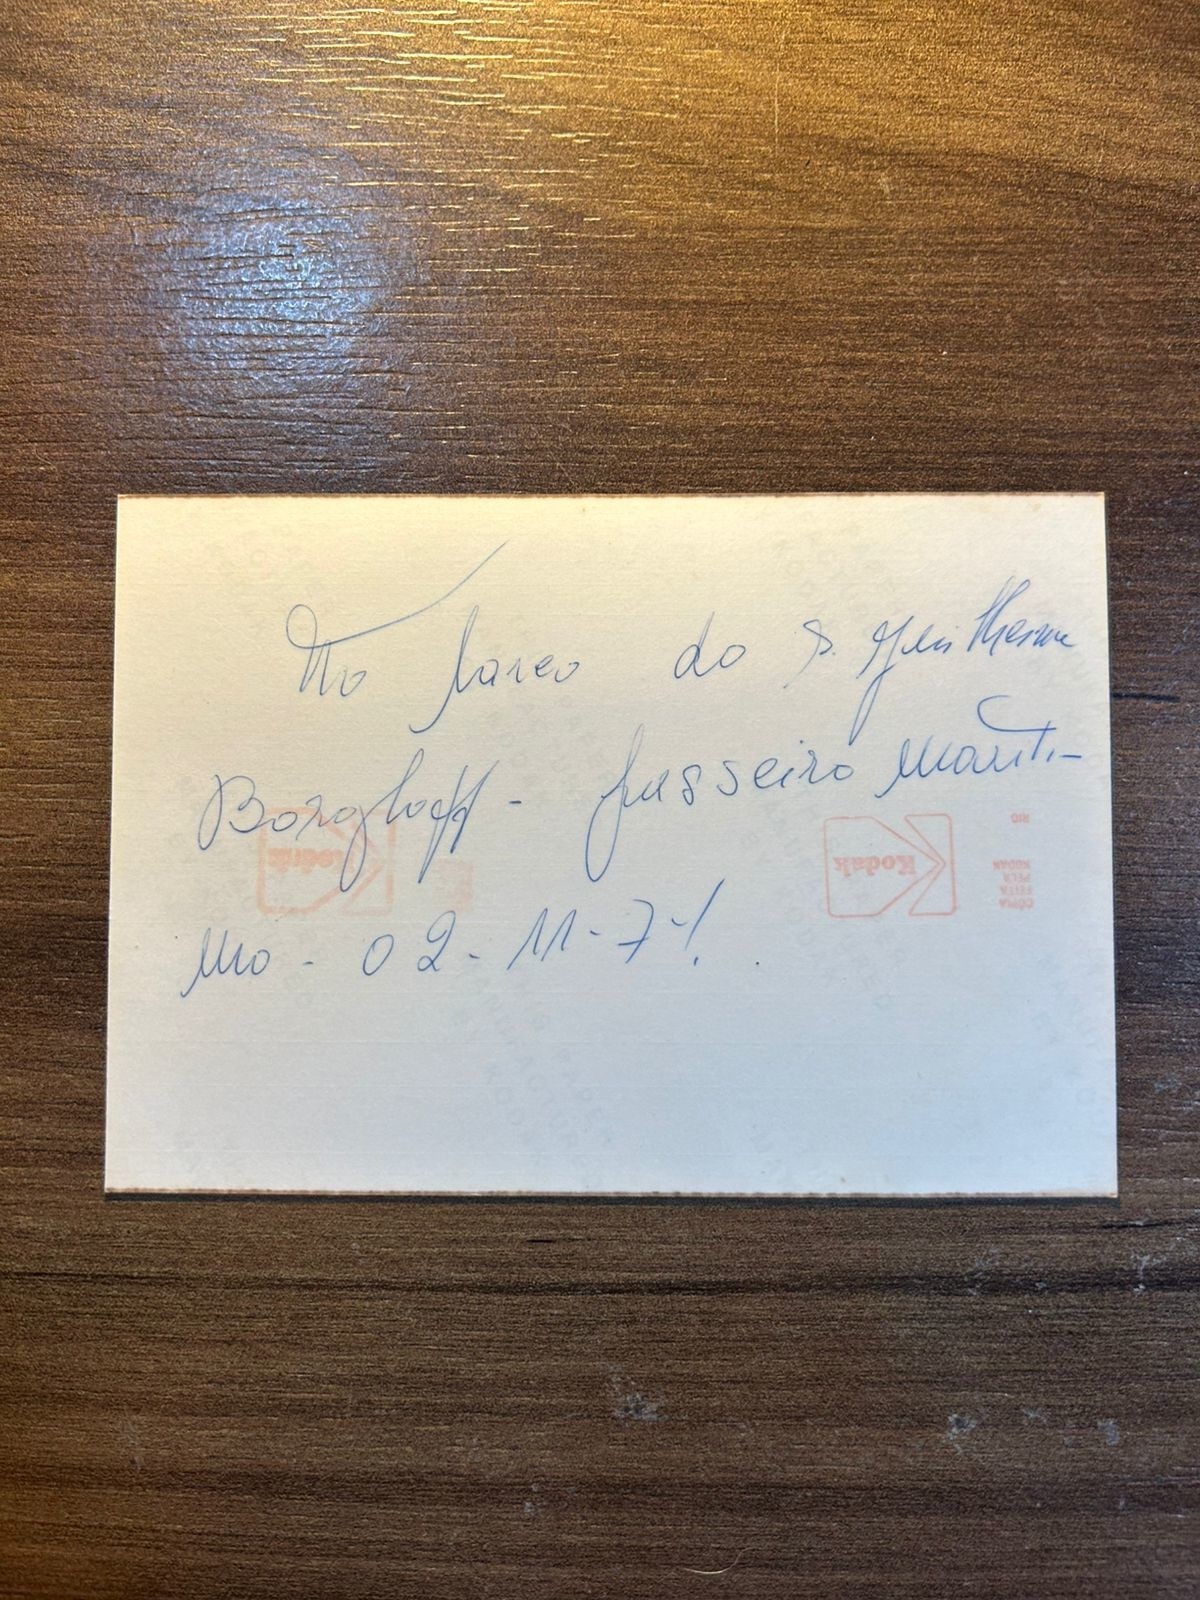 No barco do S. Guilherme
Borghoff - Passeiro Maríti-
mo - 02-11-71.
Kodak
Kodak
CÓPIA
FEITA
PELA
KODAK
RIO